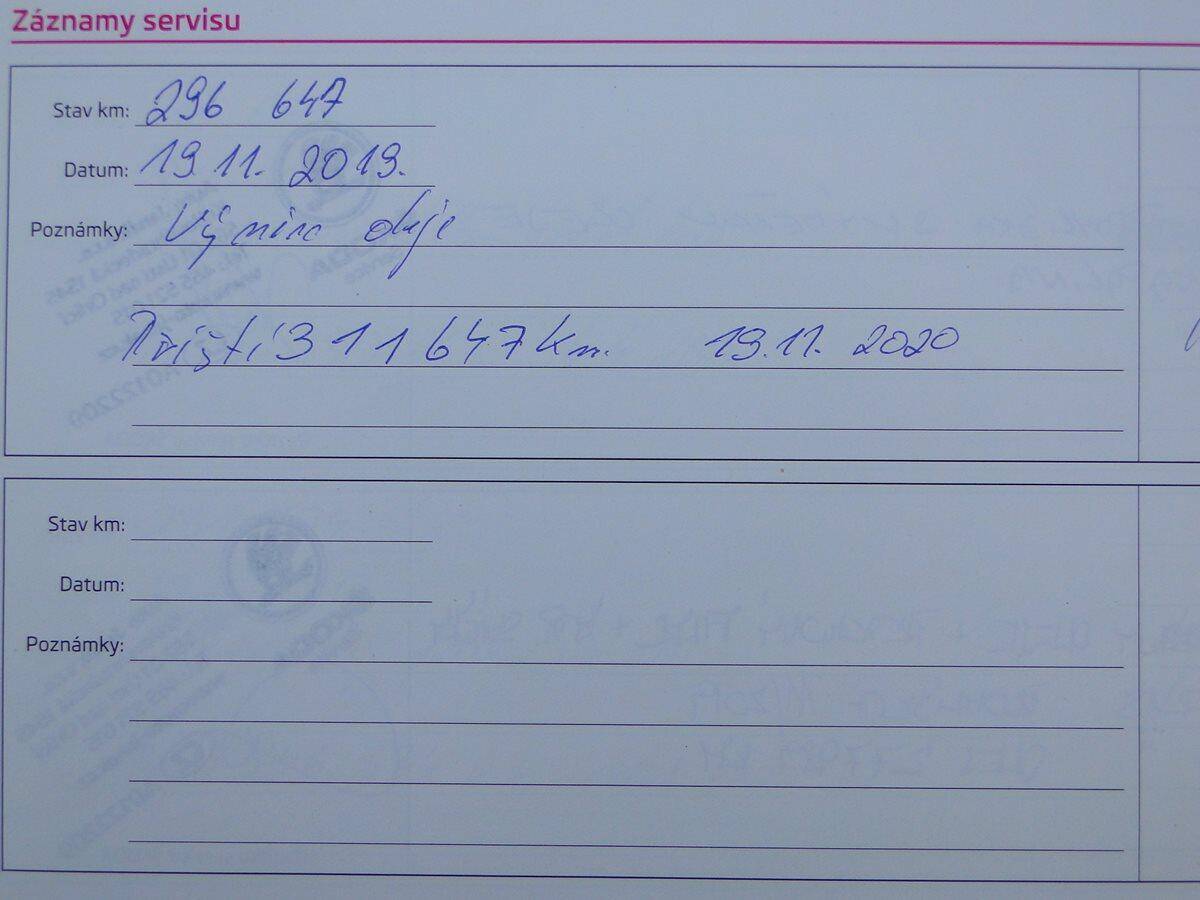 Záznamy servisu
Stav km: 296 647
Datum: 19.11. 2019.
Poznámky: Výměna oleje
Příští 311 647 km. 19.11. 2020
Stav km:
Datum:
Poznámky: